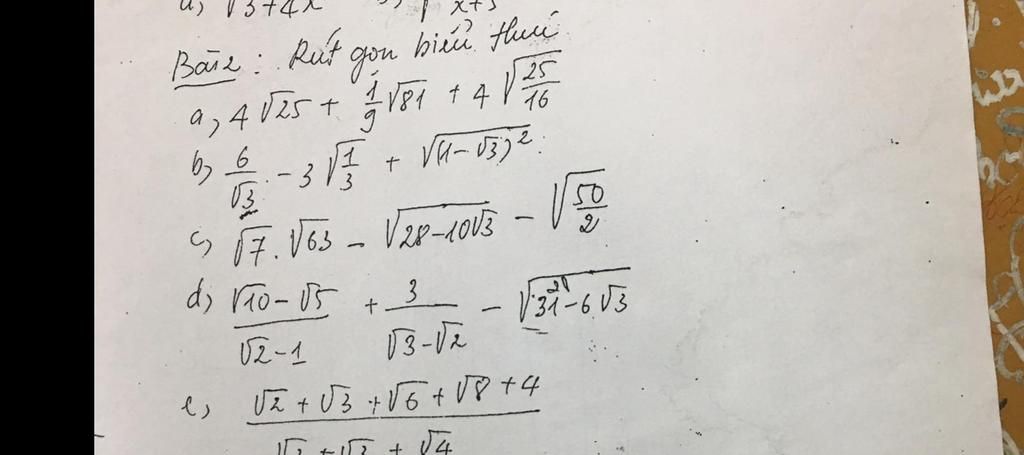 a, √3+4x
Bài 2 : Rút gọn biểu thức
a, 4√25 + 1/9 √81 + 4√(25/16)
b) 6/√3 - 3√(1/3) + √((1-√3)²)
c, √7 . √63 - √(28-10√3) - √(50/2)
d, (√10-√5)/(√2-1) + 3/(√3-√2) - √(31-6√3)
e, (√2+√3+√6+√8+4)/(√2+√3+√4)